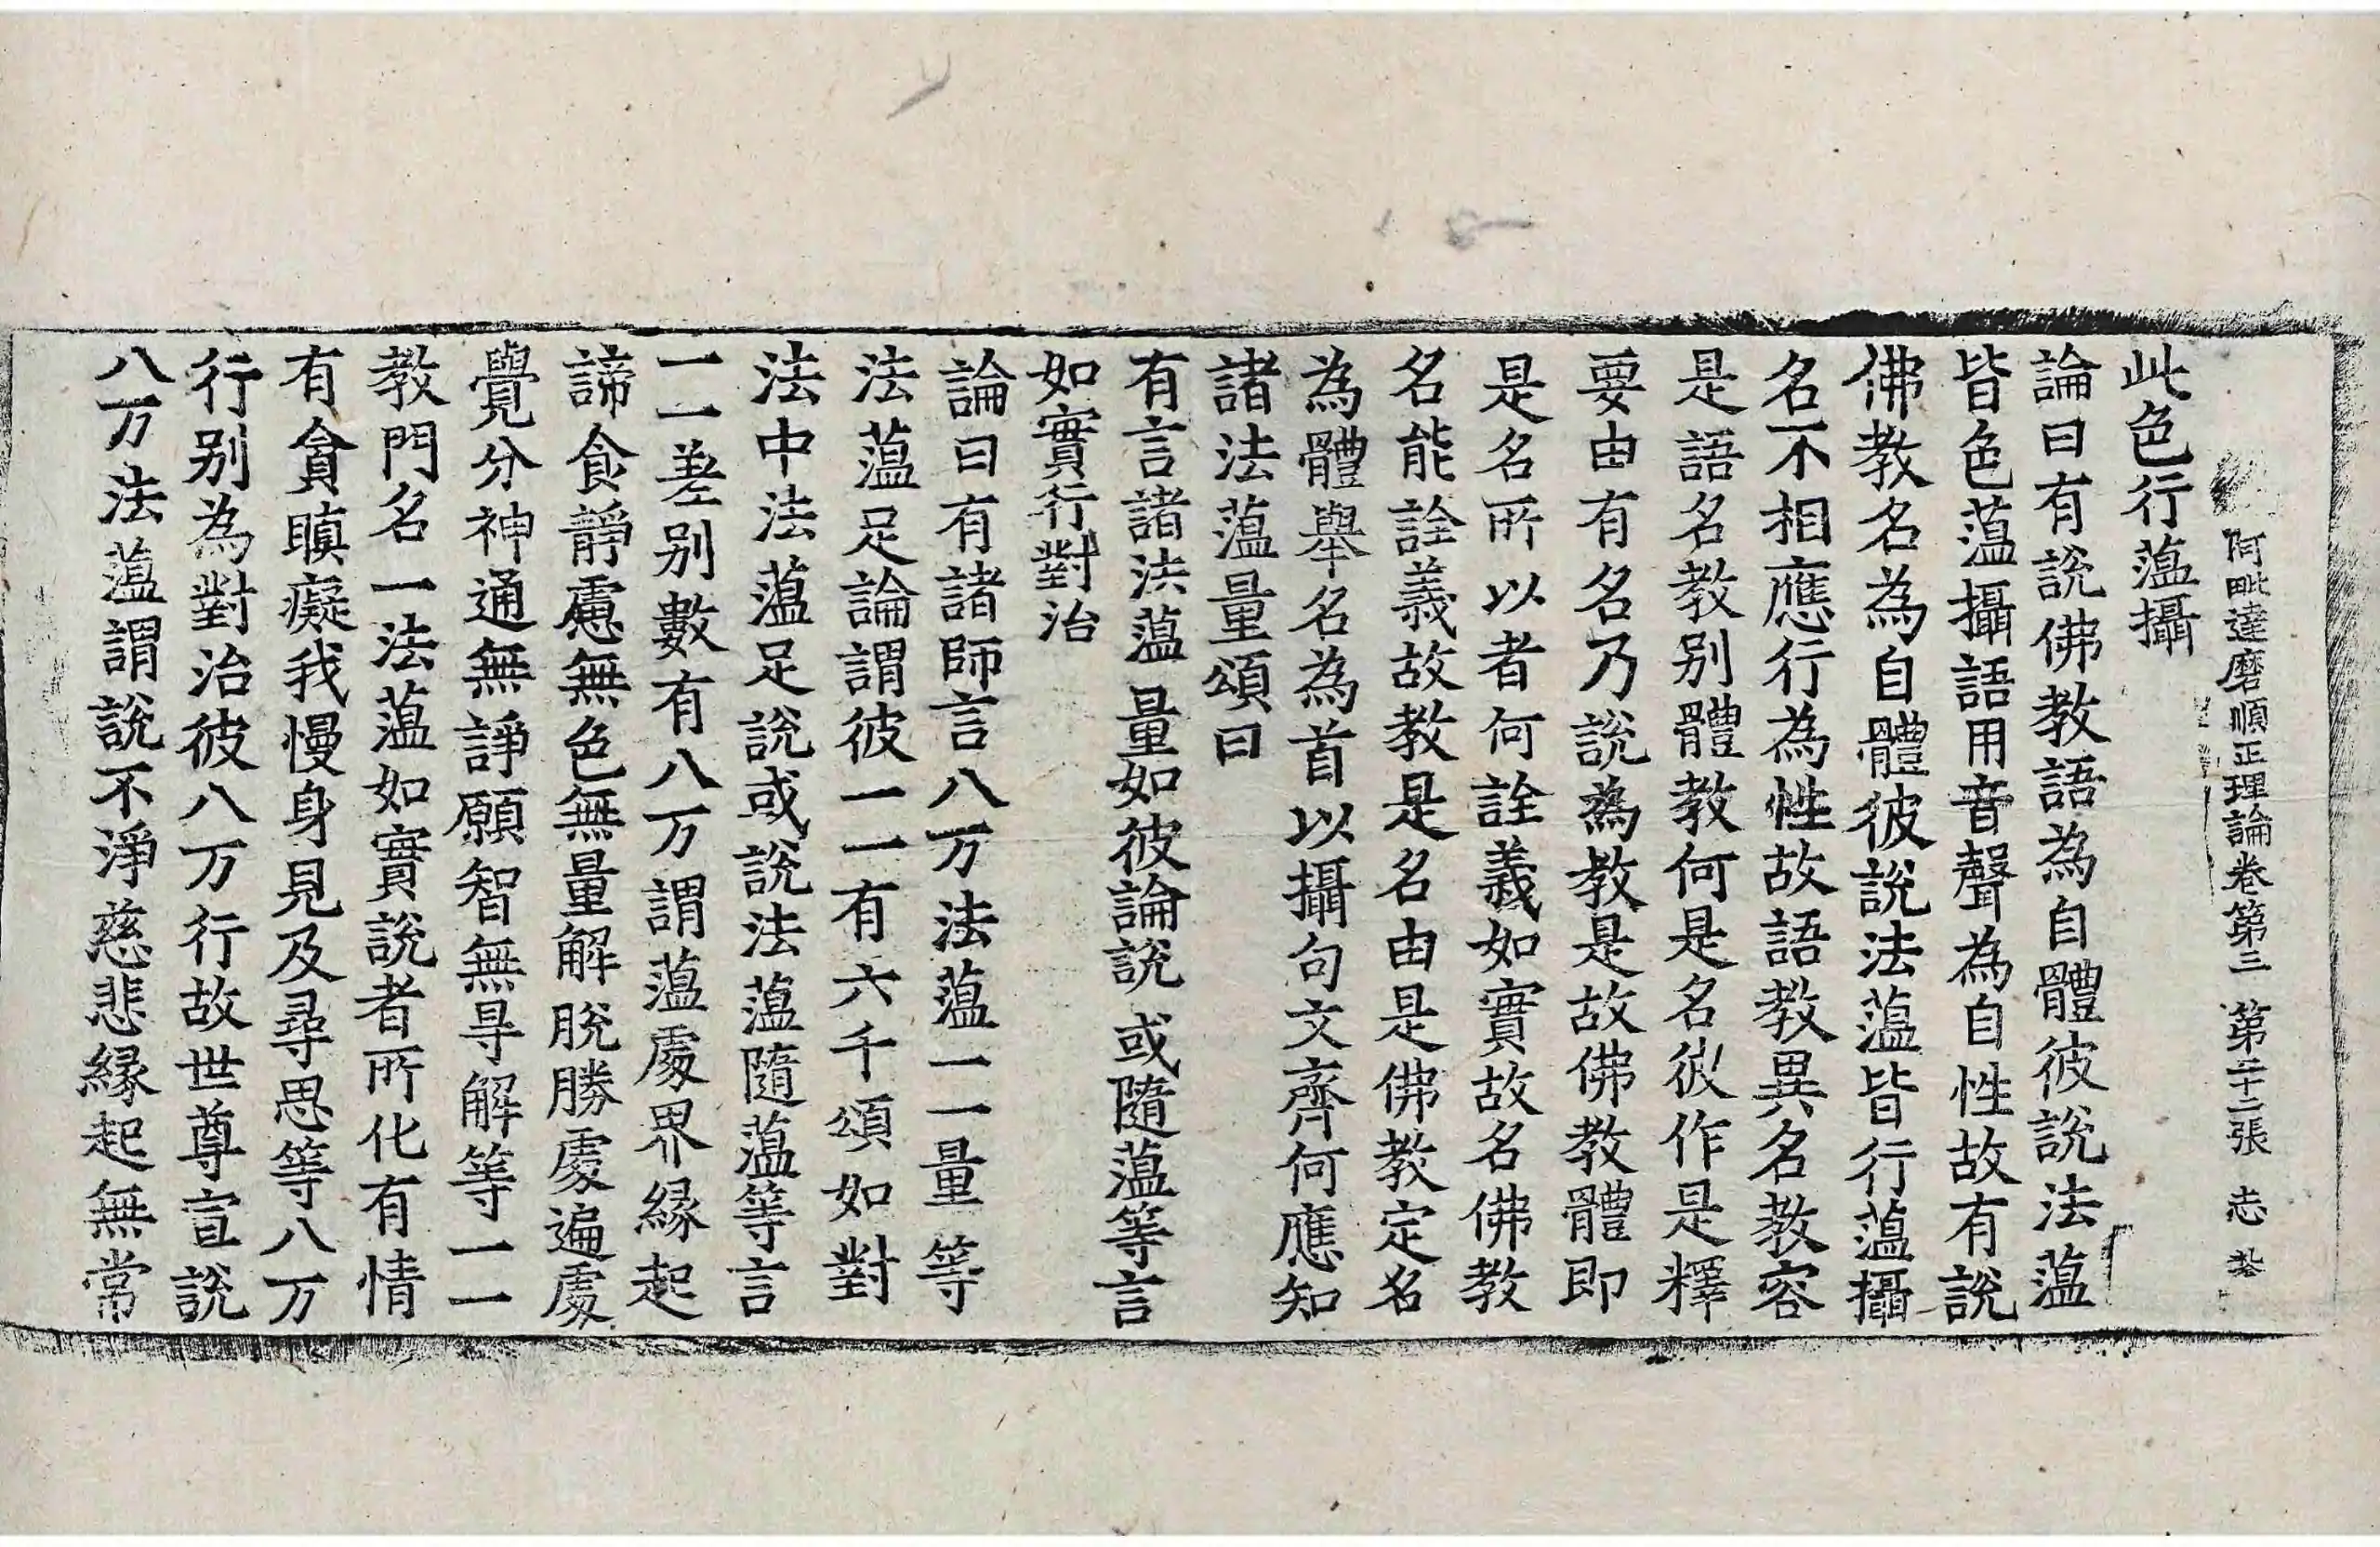 阿毗達磨順正理論卷第三 第二十二張 志
此色行薀攝
論曰有說佛教語為自體彼說法薀
皆色薀攝語用音聲為自性故有說
佛教名為自體彼說法薀皆行薀攝
名不相應行為性故語教異名教容
是語名教别體教何是名彼作是釋
要由有名乃說為教是故佛教體即
是名所以者何詮義如實故名佛教
名能詮義故教是名由是佛教定名
為體舉名為首以攝句文齊何應知
諸法薀量頌曰
有言諸法薀 量如彼論說 或隨薀等言
如實行對治
論曰有諸師言八万法薀一一量等
法薀足論謂彼一一有六千頌如對
法中法薀足說或說法薀隨薀等言
一一差别數有八万謂薀處界緣起
諦食靜慮無色無量解脫勝處遍處
覺分神通無諍願智無㝵解等一一
教門名一法薀如實說者所化有情
有貪瞋癡我慢身見及尋思等八万
行别為對治彼八万行故世尊宣說
八万法薀謂說不淨慈悲緣起無常